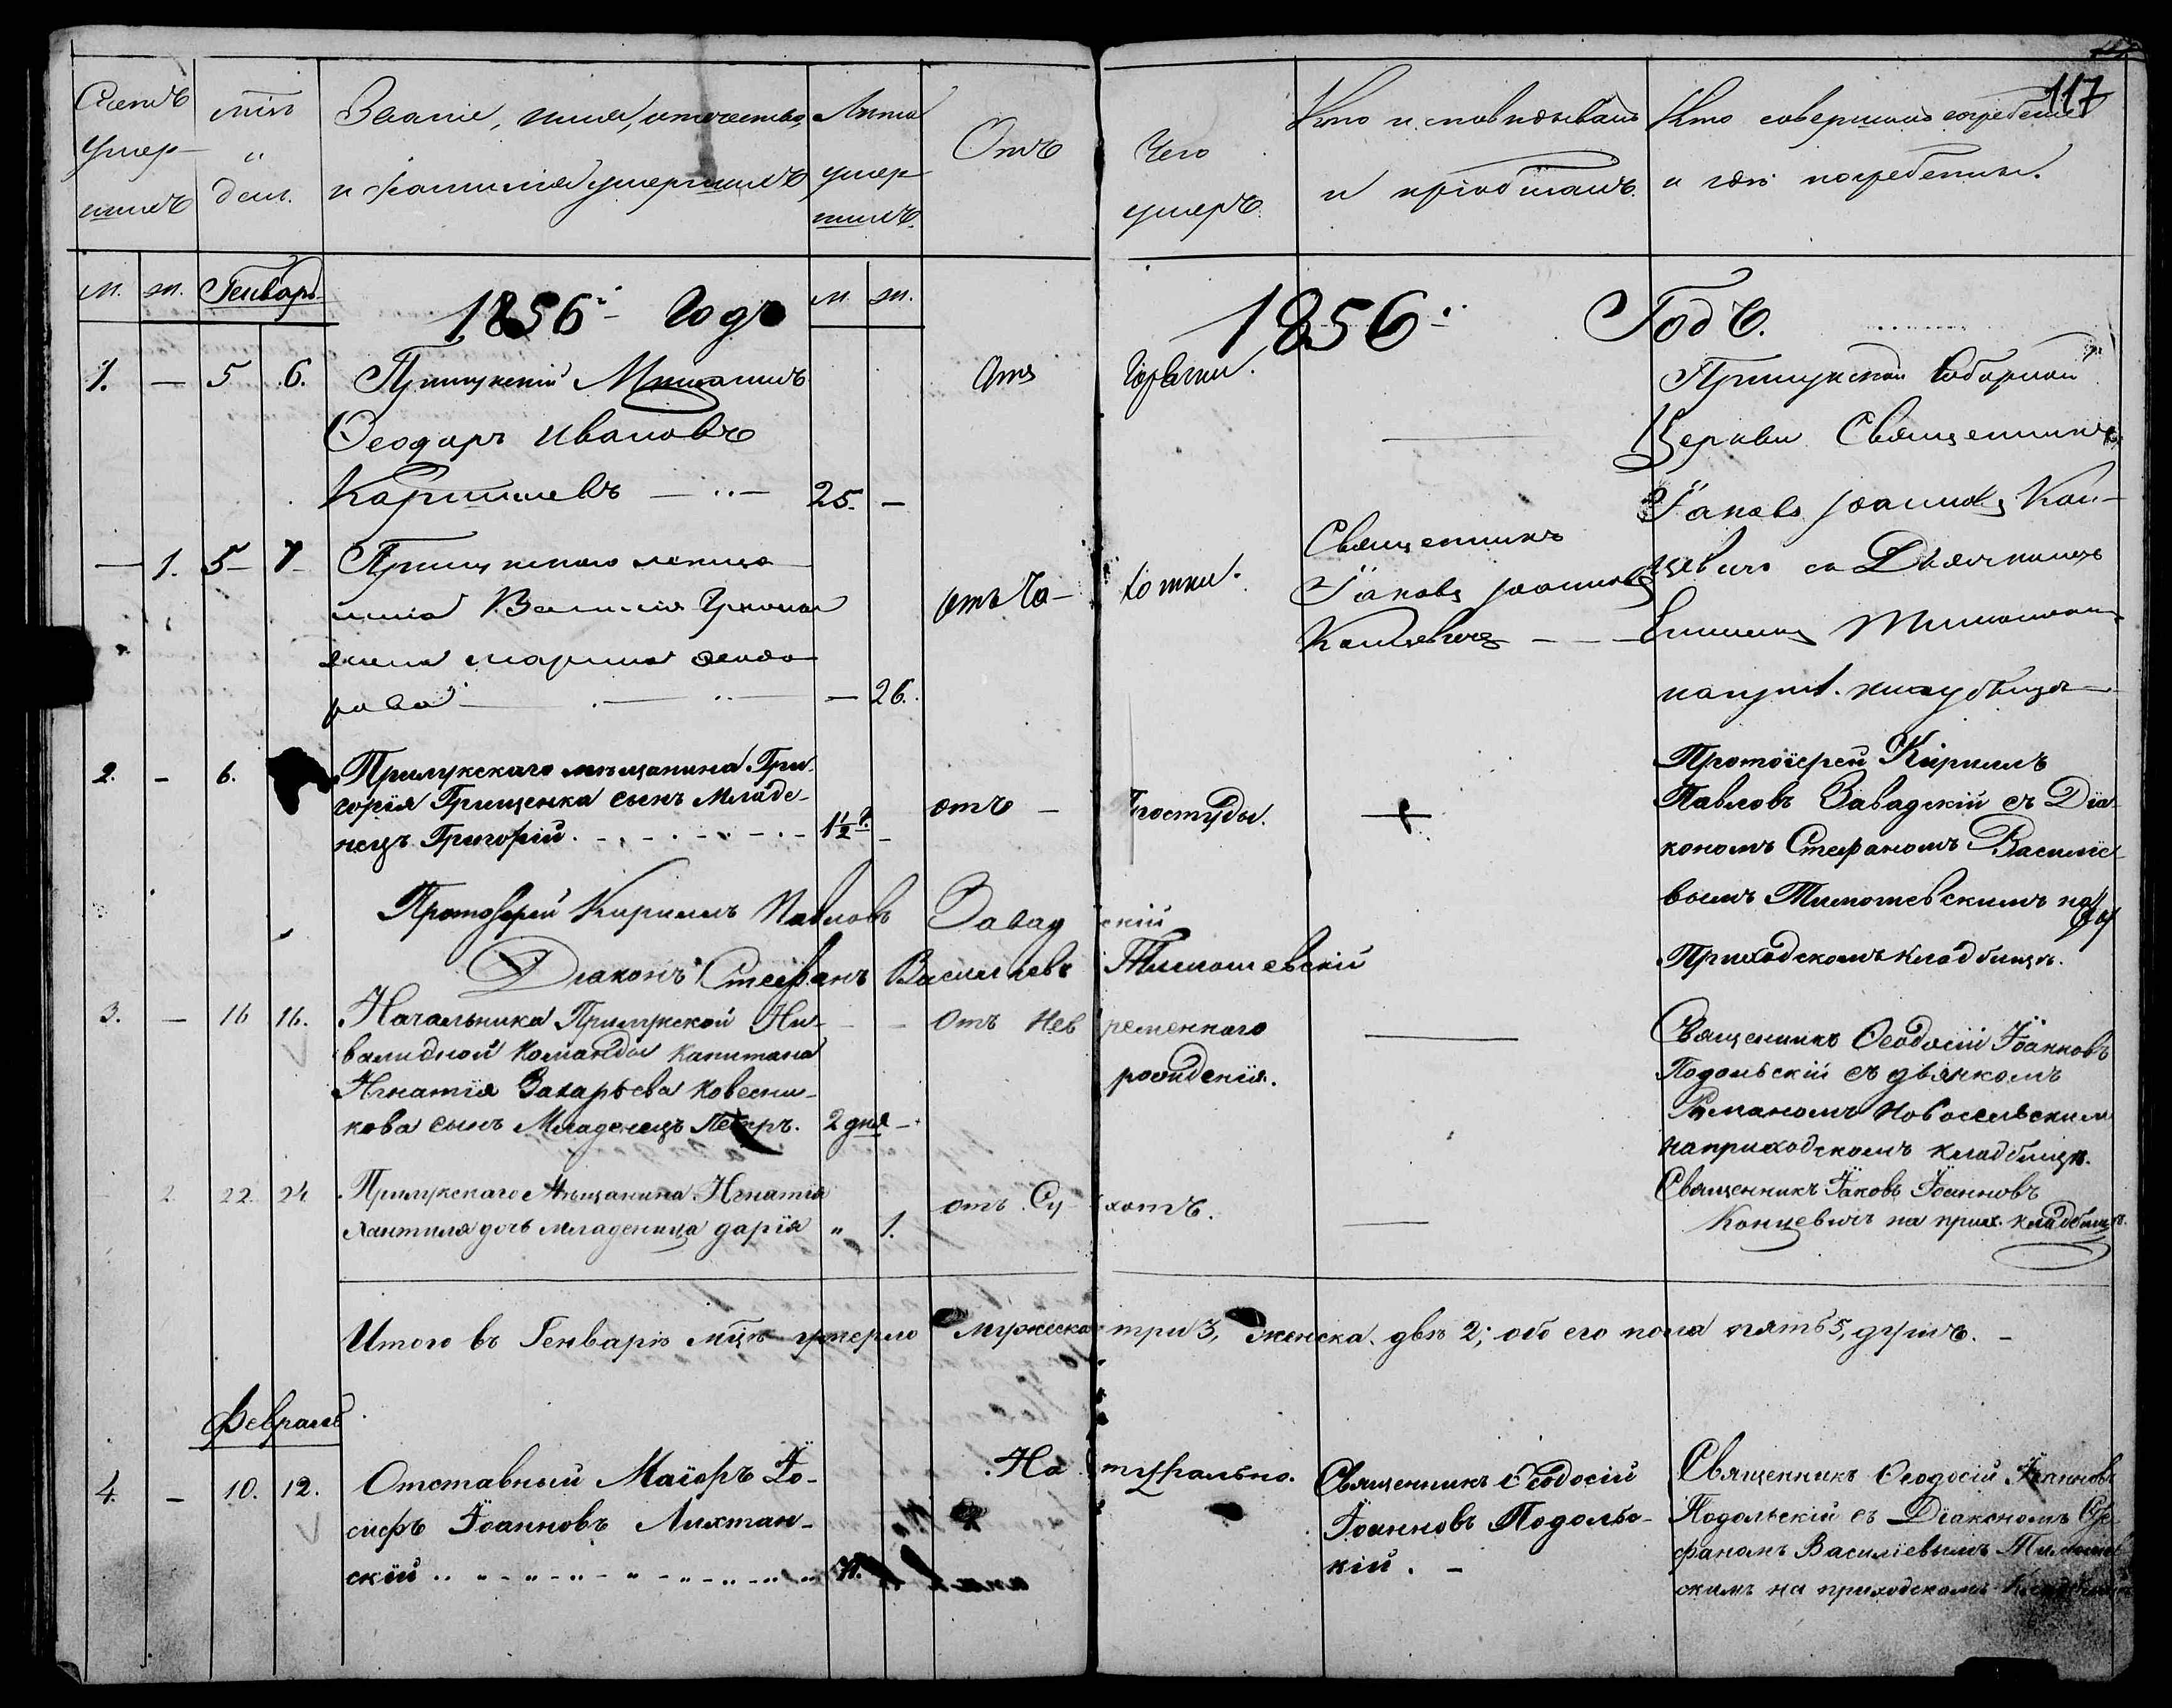 117
Счетъ умер-шихъ
мѣсц. и день.
Званіе, имя, отчество, и фамилія умершихъ
Лѣта умер-шихъ.
Отъ Чего умеръ.
Кто исповѣдывалъ и пріобщалъ.
Кто совершалъ погребеніе и гдѣ погребены.
м. ж. Генварь м. ж.
1856.- Годъ
1856.- Годъ.
1. — 5 6. Прилукскій Мѣщанинъ
Ѳеодоръ Ивановъ
— 25. —
Отъ Горячки.
Прилукской Соборной
Церкви Священникъ
Іаковъ Іоанновъ Кон-
цевичъ съ Дьячкомъ
на прих. кладбищѣ
— 1. 5 7 Прилукскаго мѣща-
нина Василія
жена Марина Ѳеодо-
рова — 26.
отъ Ча- хотки.
Священникъ
Іаковъ Іоанновъ
Концевичъ
2. - 6. Прилукскаго мѣщанина Гри-
горія Грищенка сынъ Младе-
нецъ Григорій. 1½ г. -
отъ - Простуды.
Протоіерей Кириллъ
Павловъ Завадскій съ Діа-
кономъ Стефаномъ Василіе-
вымъ Тимошевскимъ на
Приходскомъ кладбищѣ.
Протоіерей Кириллъ Павловъ Завадскій
Діаконъ Стефанъ Василіевъ Тимошевскій
3. — 16 16. Начальника Прилукской Ин-
валидной Команды Капитана
Игнатія Захарьева Ковесни-
кова сынъ Младенецъ Петръ. 2 дня -
Отъ Невременнаго
рожденія.
Священникъ Ѳеодосій Іоанновъ
Подольскій съ дьячкомъ
Романомъ Новосельскимъ
на приходскомъ кладбищѣ.
2. 22. 24 Прилукскаго Мѣщанина Игнатія
дочь младеница Дарія „ 1.
отъ Сухотъ.
Священникъ Іаковъ Іоанновъ
Концевичъ на прих. кладбищѣ.
Итого въ Генварѣ мцѣ умерло мужеска три 3, женска двѣ 2; обоего пола пять 5, душъ. -
Февраль
4. - 10. 12. Отставный Маіоръ Іо-
сифъ Іоанновъ Лихтан-
скій
Натурально.
Священникъ Ѳеодосій
Іоанновъ Подольс-
кій. -
Священникъ Ѳеодосій Іоанновъ
Подольскій съ Діакономъ Сте-
фаномъ Василіевымъ Тимошев-
скимъ на приходскомъ кладбищѣ